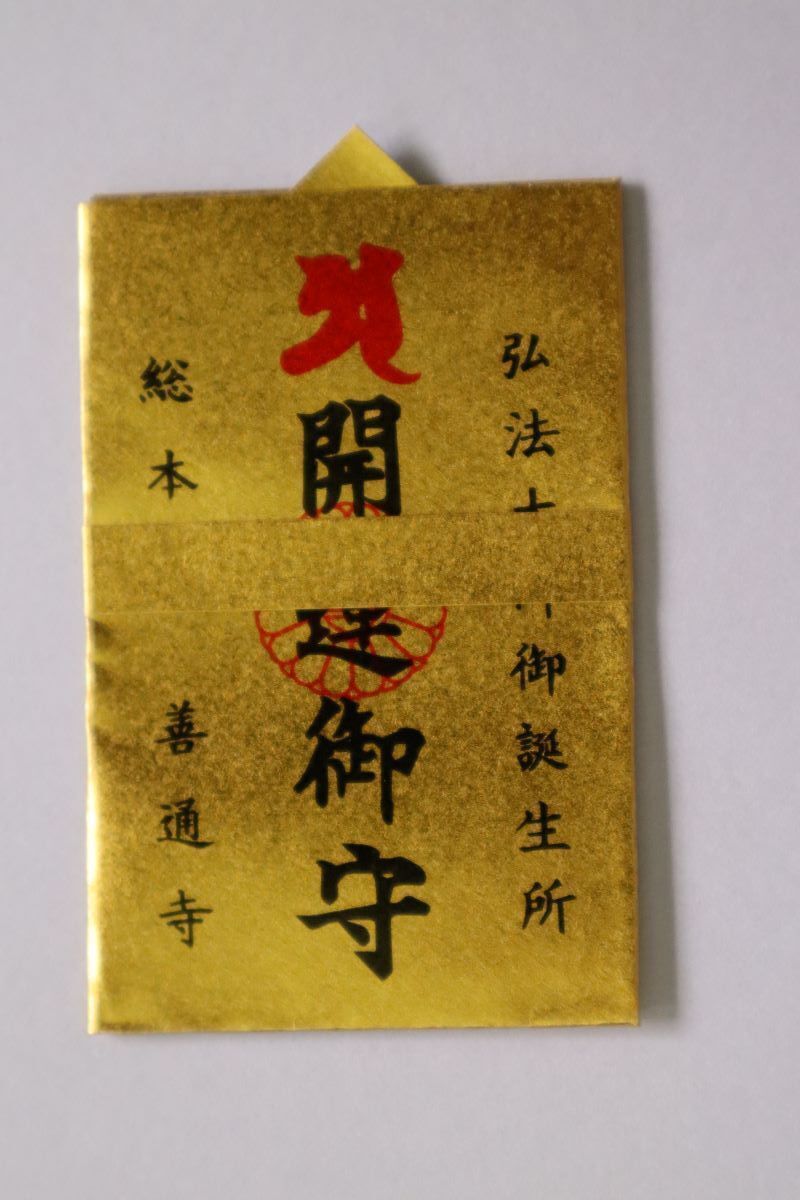 弘法大師御誕生所
開運御守
総本善通寺